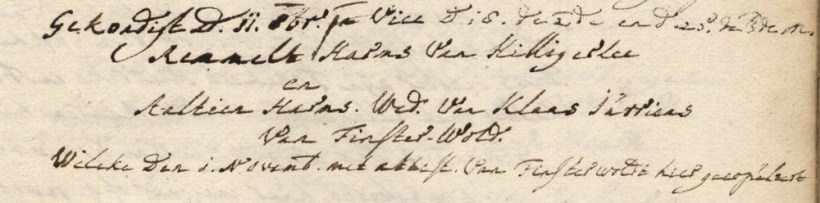 Gekondigt D. 11. 8br. 1e Vice D. 18. de 2de en d. 25. de 3de m.
Remmelt Harms Van Hilligerlee
en
Aaltien Harms. Wed. Van Klaas Jurriens
Van Finster-Wold.
Welcke Den 1. Novemb. met attest. Van Finsterwold hier gecopuleert